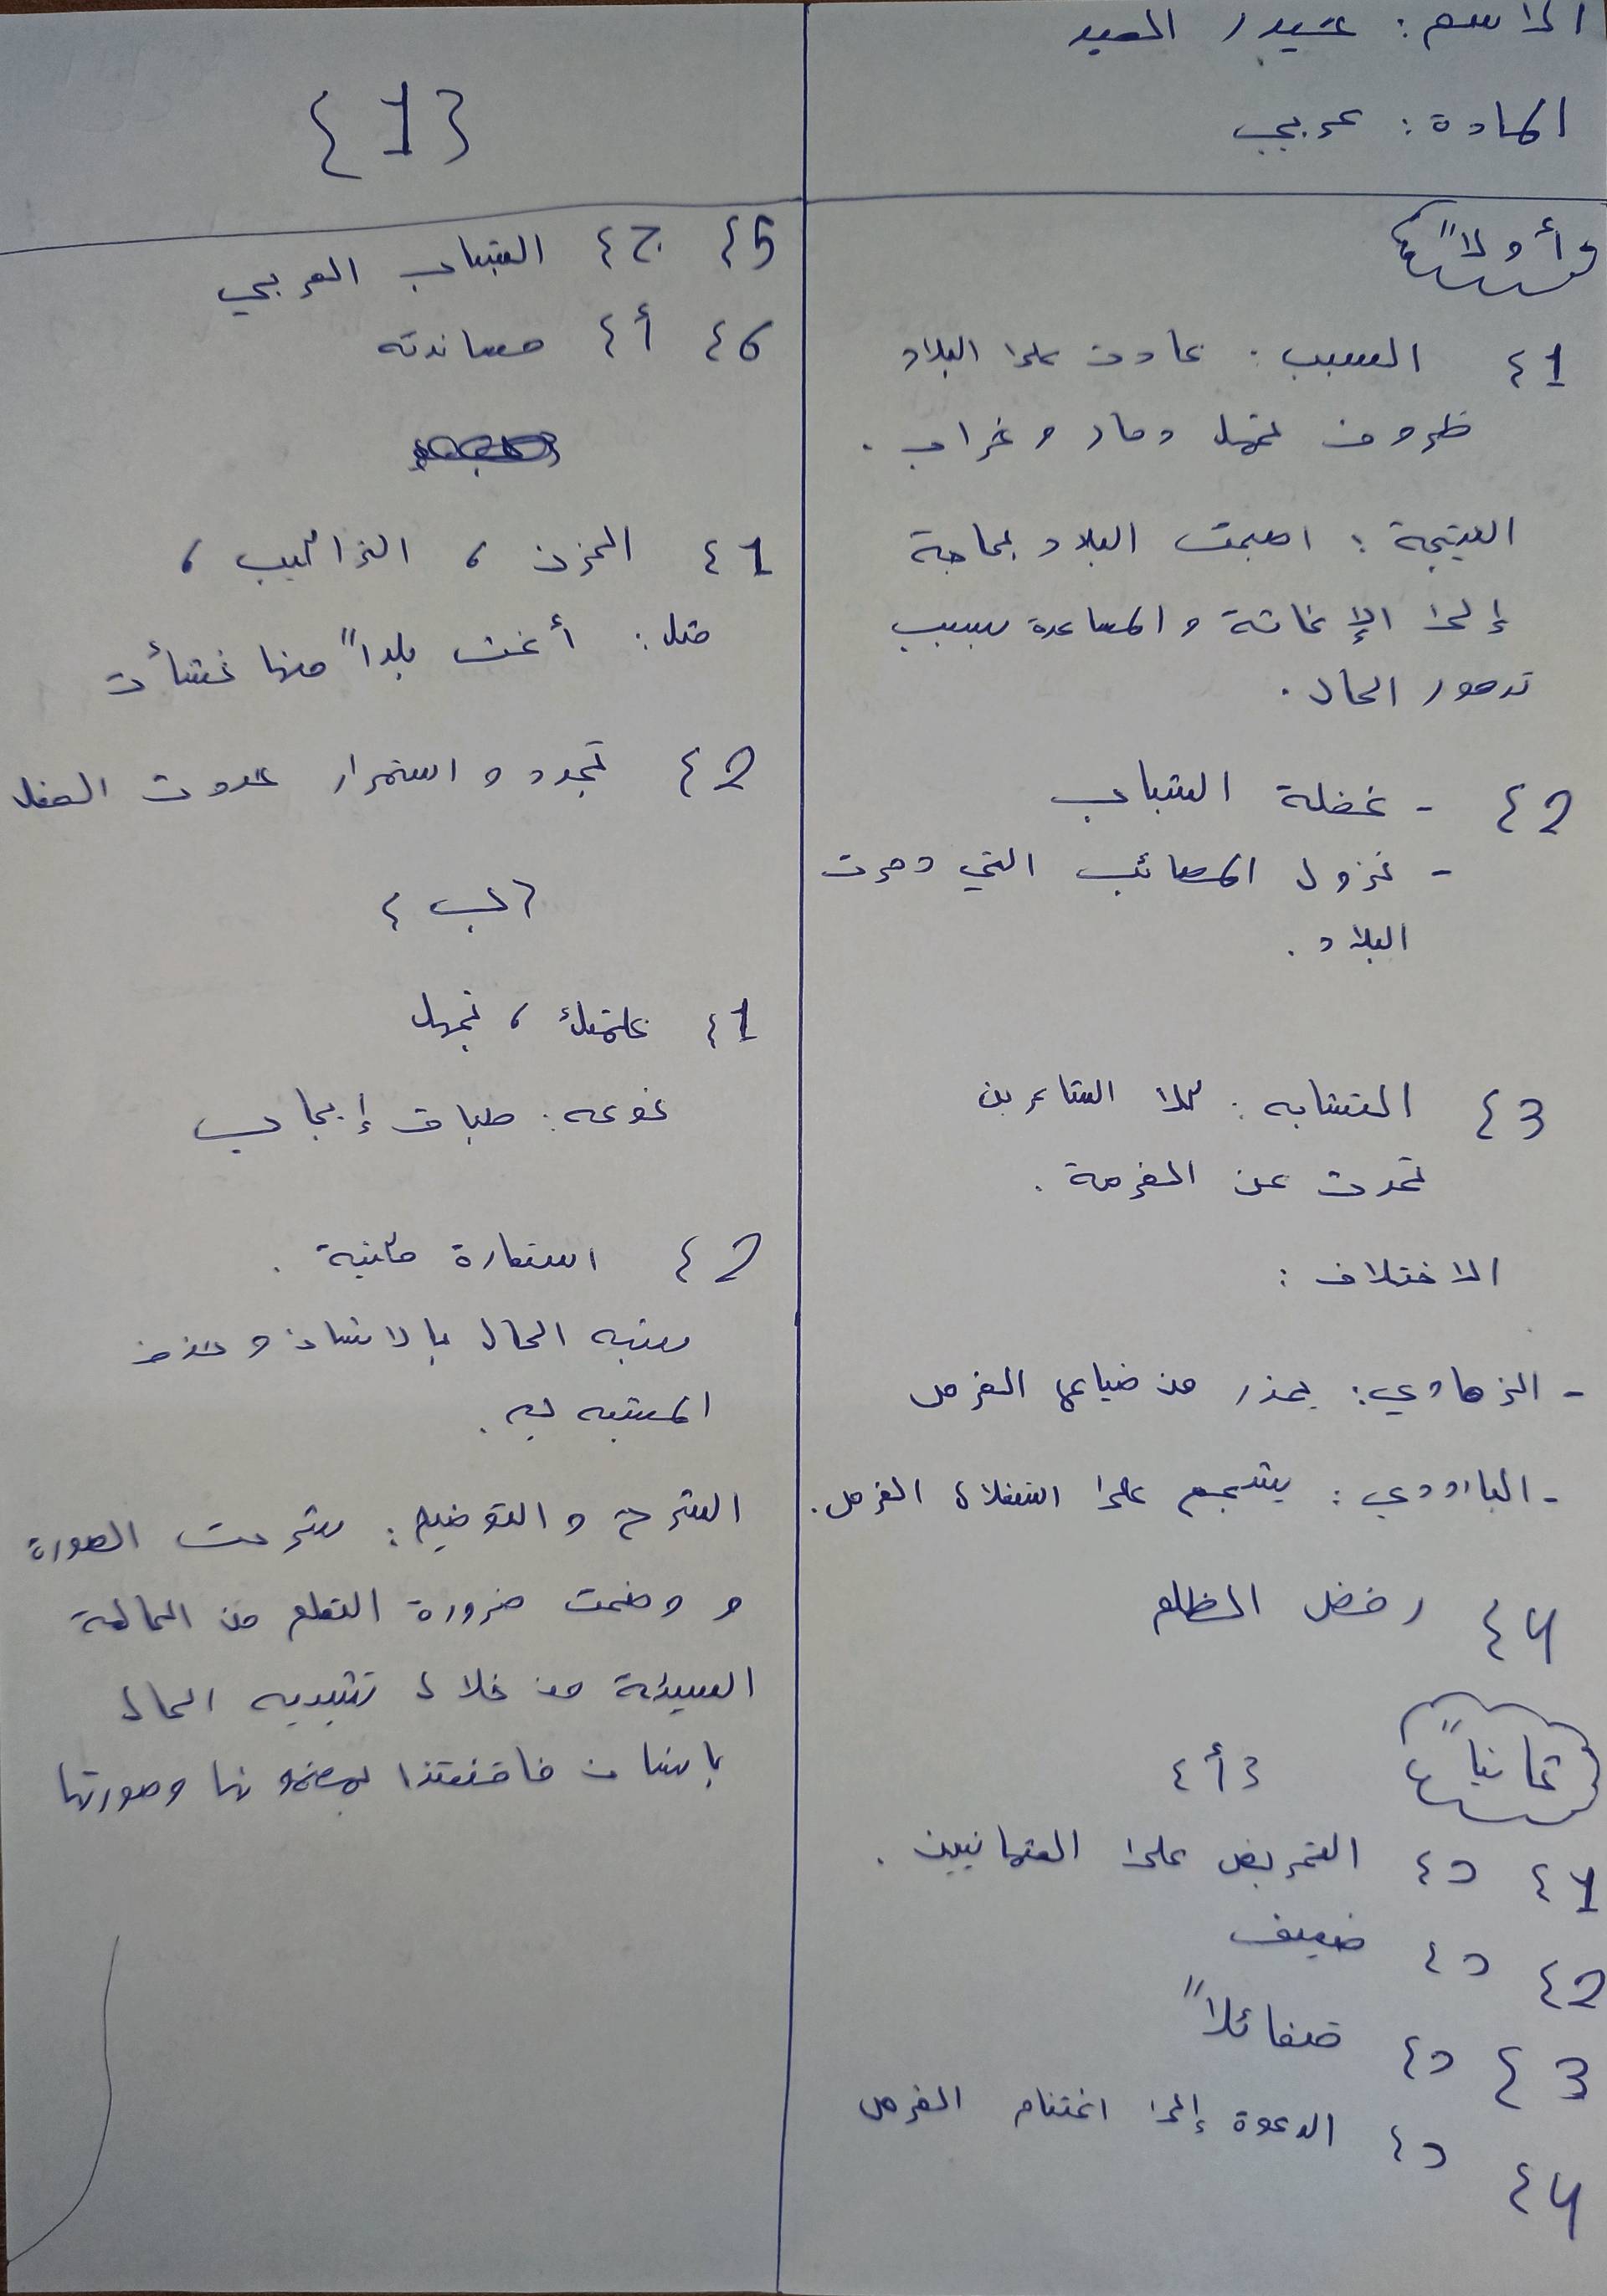 الاسم: حيدر العبد
المادة: عربي
{1}
أولاً
1} السبب: عادت على البلاد
ظروف تجهل دمار و خراب.
النتيجة: اصبحت البلاد بحاجة
إلى الإغاثة و المساعدة بسبب
تدهور الحال.
2} - غفلة الشباب
- نزول المصائب التي دمرت
البلاد.
3} التشابه: كلا الشاعرين
تحدث عن الفرصة.
الاختلاف:
- الزهاوي: يحذر من ضياع الفرص
- البارودي: يشجع على استغلال الفرص.
4} رفض الظلم
ثانياً {أ}
1} د} التحريض على العثمانيين.
2} د} ضعيف
3} د} متفائلاً
4} د} الدعوة إلى اغتنام الفرص
5} ج} الشباب العربي
6} أ} مساندته
1} الحزن، التراكيب،
مثل: أغث بلداً منها نشأت
2} تجدد و استمرار حدوث الفعل
{ب}
1} علمتك، تجهل
نوعه: طباق إيجاب
2} استعارة مكنية.
شبه الحال بالانسان و حذف
المشبه به.
الشرح و التوضيح: شرحت الصورة
و وضحت ضرورة التعلم من الحالة
السيئة من خلال تشبيه الحال
بإنسان فاقنعتنا بمضمونها وصورتها